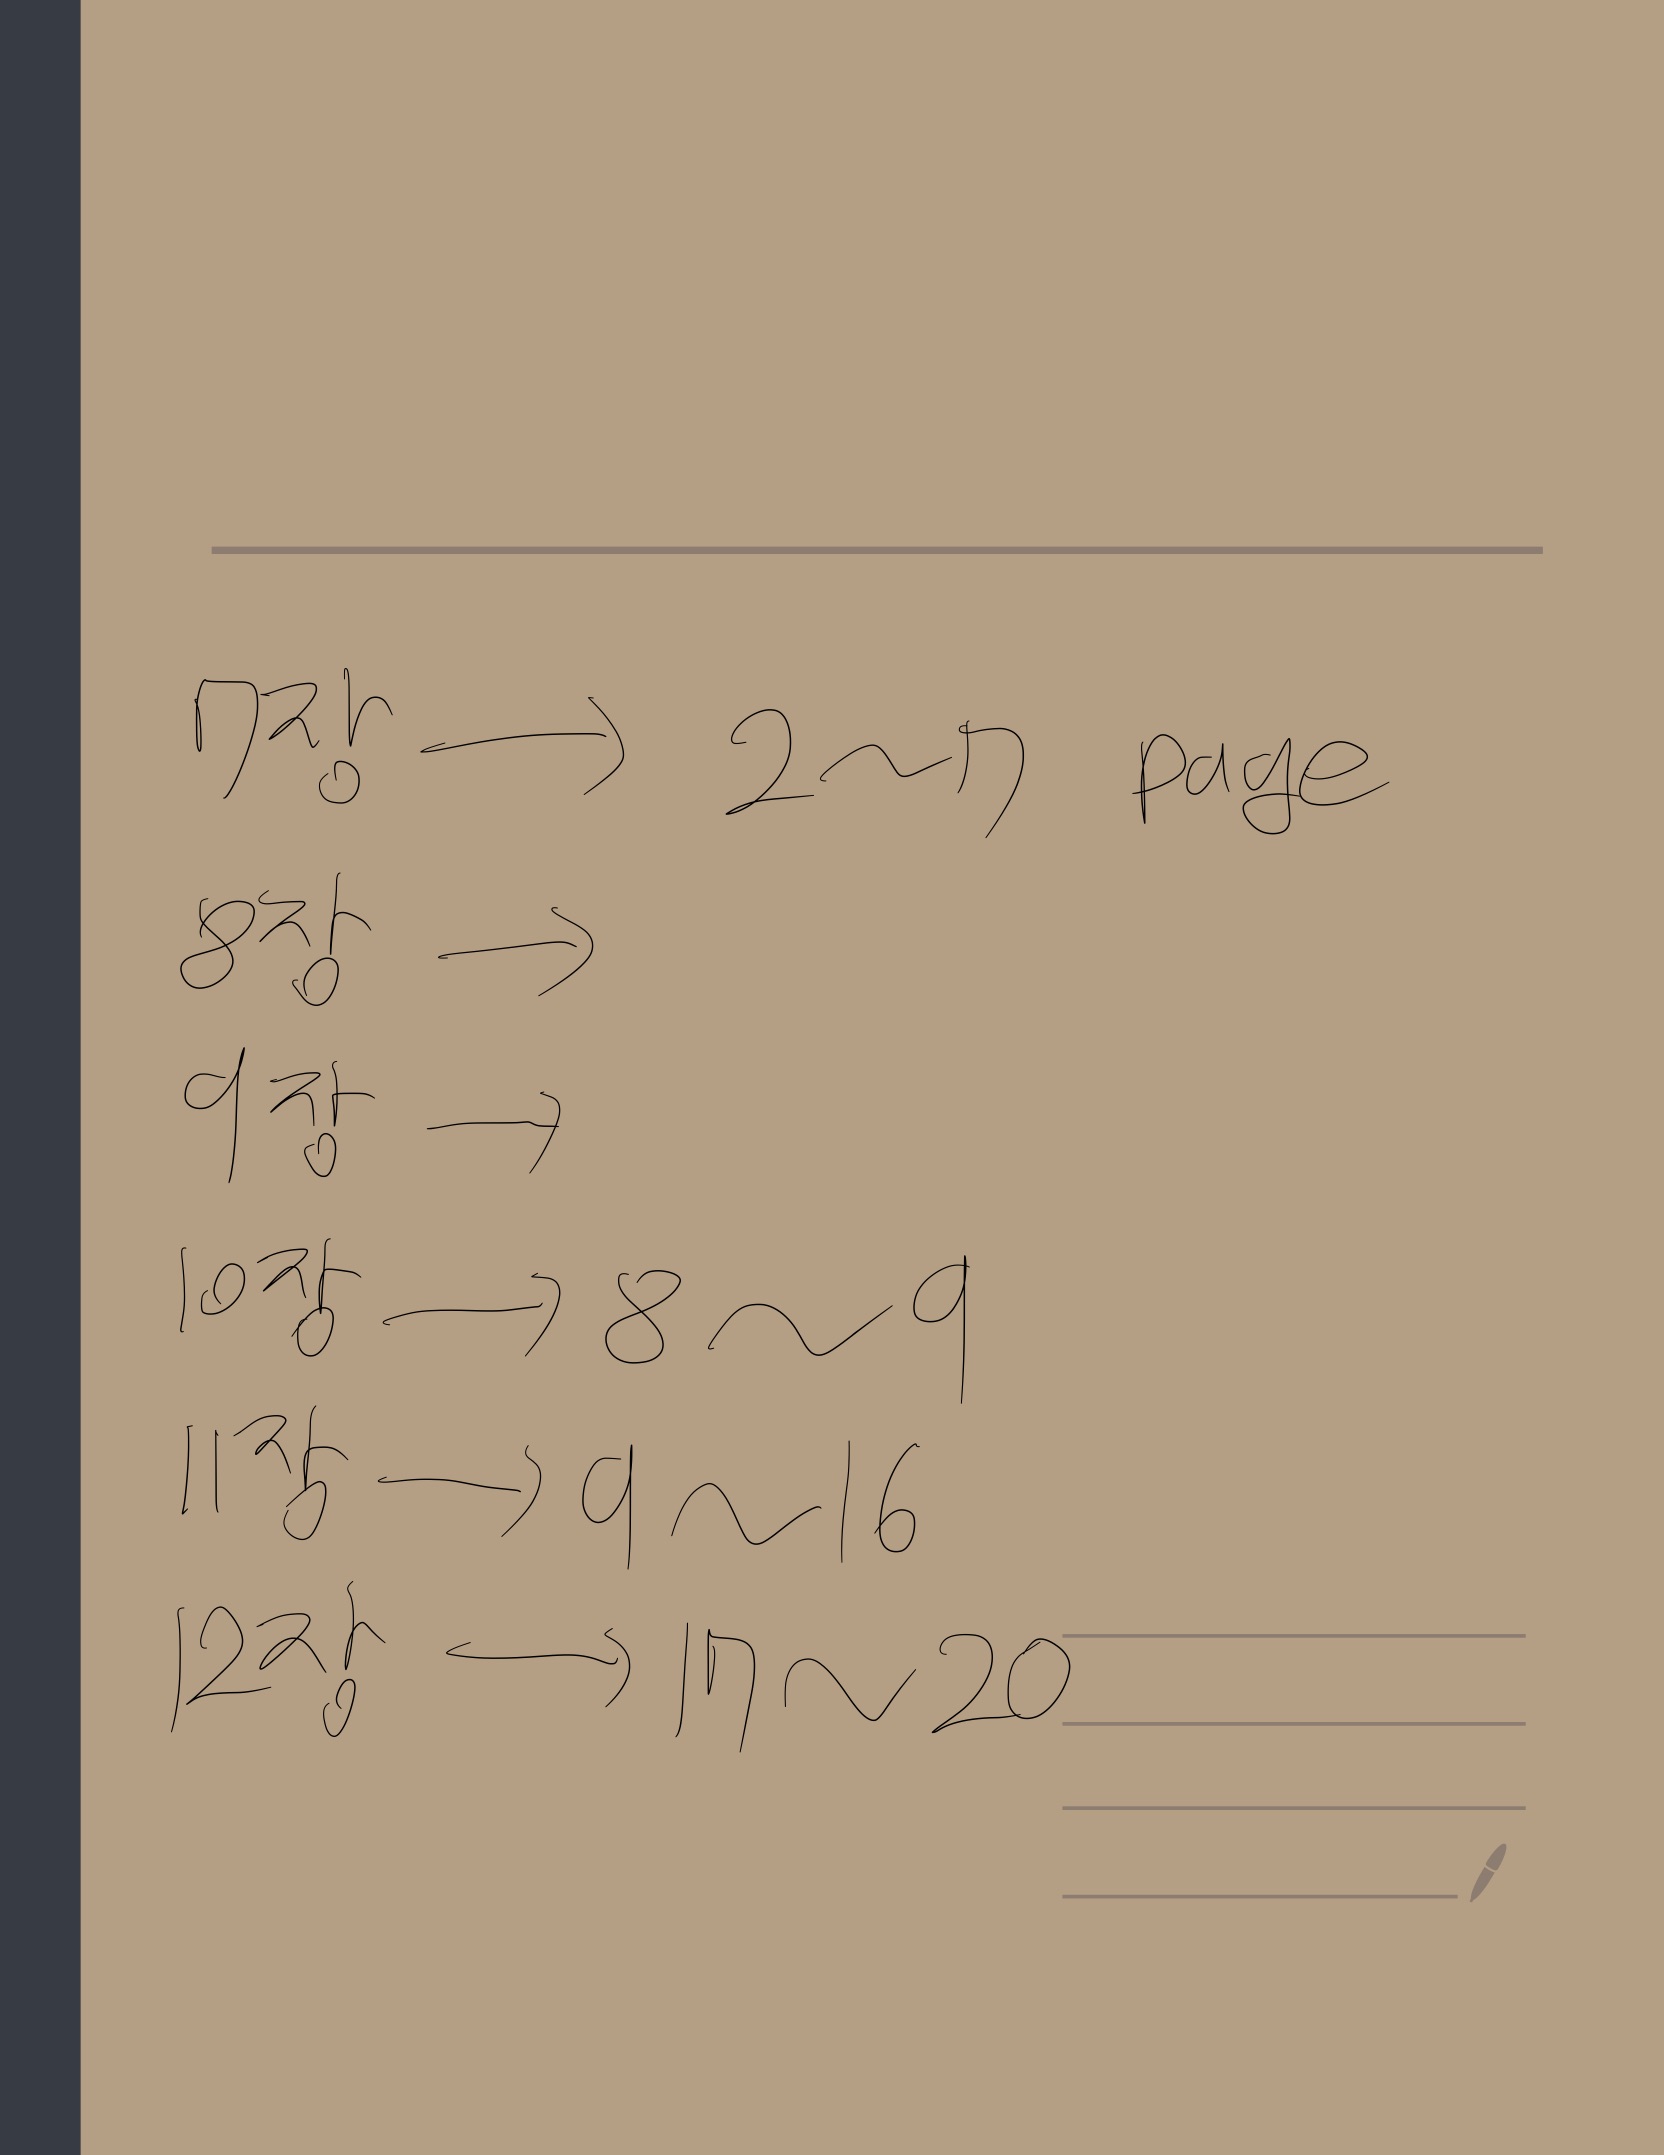 7장 → 2~7 page
8장 →
9장 →
10장 → 8~9
11장 → 9~16
12장 → 17~20